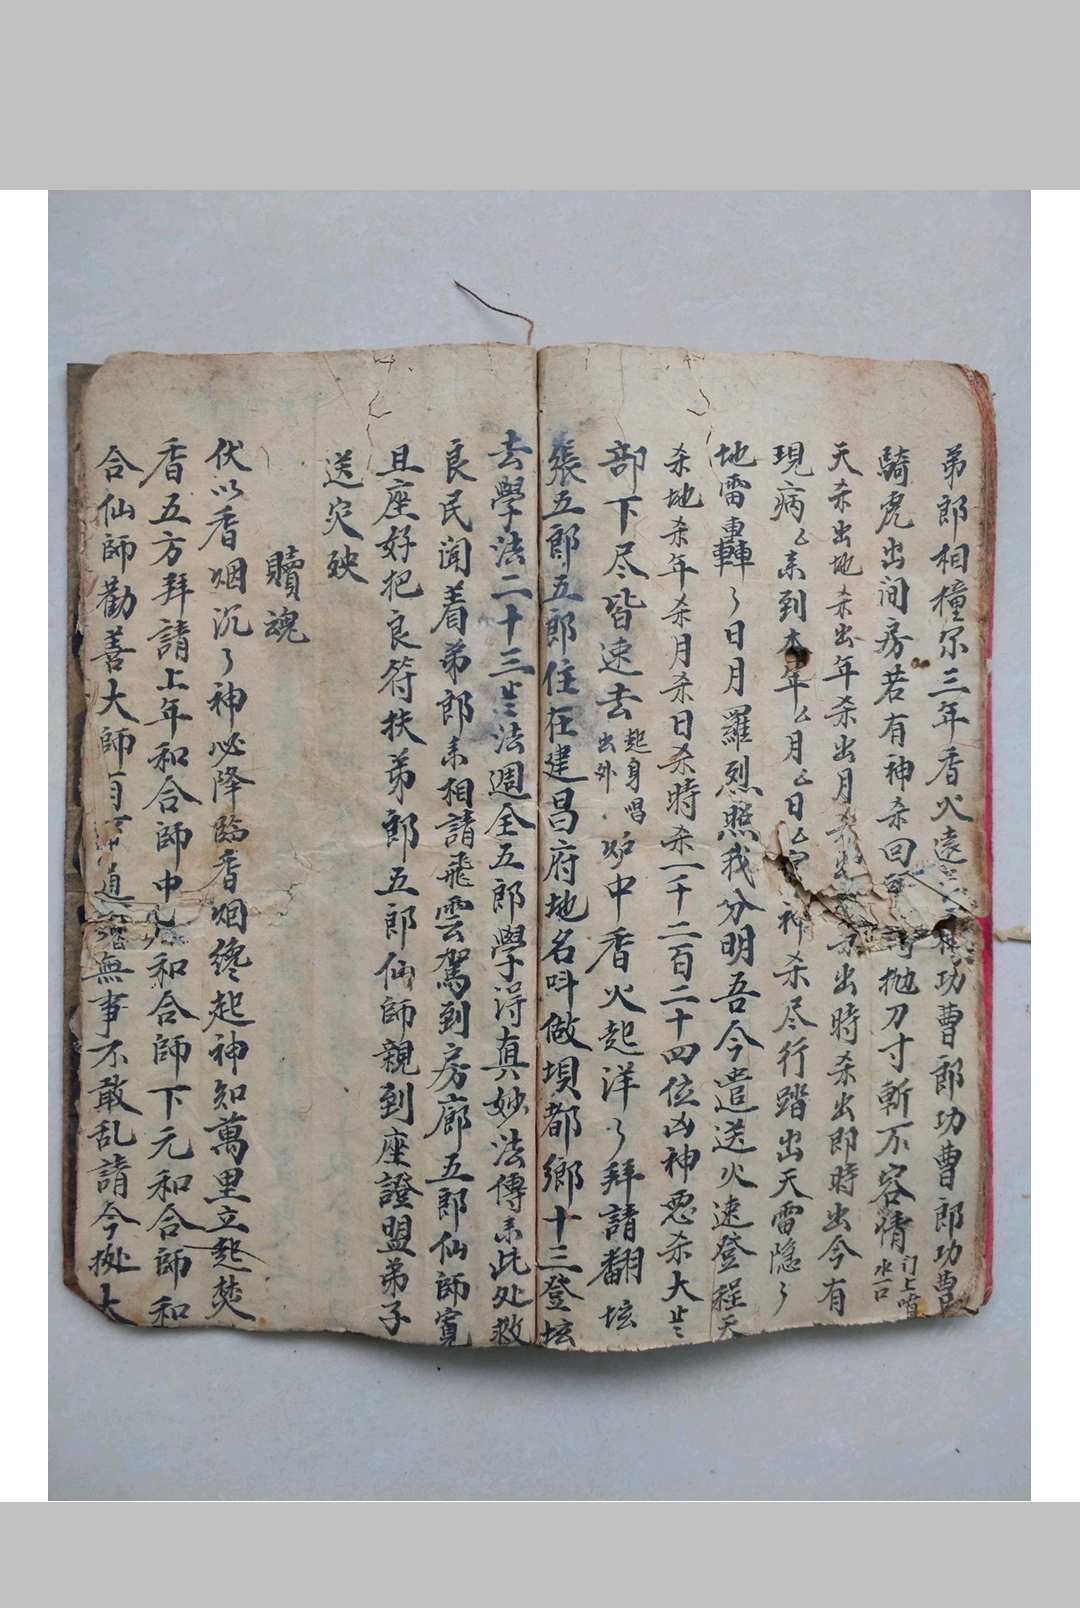 弟郎相撞冧三年香火遠功曹郎功曹郎功曹
騎虎出洞房若有神杀回抛刀寸斬不容情
门上噴水一口
天杀出地杀出年杀出月杀出出時杀出即時出今有
現病厶厶来到本年厶月厶日厶神杀尽行踏出天雷隐々
地雷轟々日月羅烈照我分明吾今遣送火速登程天
杀地杀年杀月杀日杀時杀一千二百二十四位凶神惡杀大
部下尽皆速去
起身唱
出外
炉中香火起洋々拜請翻坛
張五郎五郎住在建昌府地名叫做垻都鄉十三登坛
去學法二十三法週全五郎學淂真妙法傳来此处救
良民闻着弟郎来相請飛雲駕到房廊五郎仙師寬
且座好把良符扶弟郎五郎仙師親到座證盟弟子
送灾殃
贖魂
伏以香烟沉々神必降臨香烟纔起神知萬里立起焚
香五方拜請上年和合師中元和合師下元和合師和
合仙師勸善大師無事不敢乱請今拠大